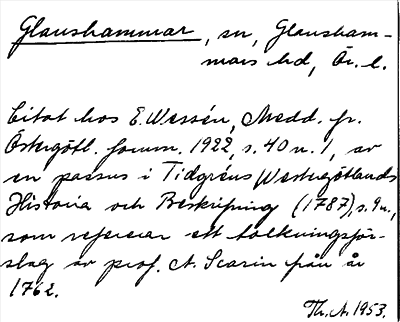 Glanshammar, sn, Glansham-
mars hd, Ör. l.
Citat hos E. Wessén, Medd. fr.
Östergötl. fornm. 1922, s. 40 n. 1, av
en passus i Tidgréns Westergötlands
Historia och Beskrifning (1787), s. 9 n.,
som refererar ett tolkningsför-
slag av prof. A. Scarin från år
1762.
Th. A. 1953.